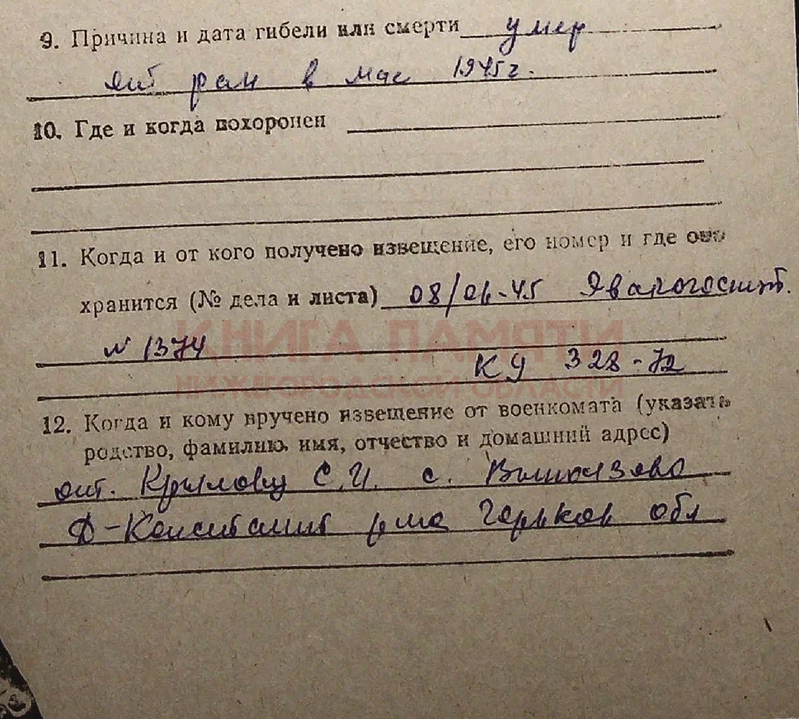 9. Причина и дата гибели или смерти умер
от ран в мае 1945г.
10. Где и когда похоронен
11. Когда и от кого получено извещение, его номер и где оно
хранится (№ дела и листа) 08/06-45 Эвакогоспит.
N 1374
КНИГА ПАМЯТИ
КУ 328-72
НИЖЕГОРОДСКОЙ ОБЛАСТИ
12. Когда и кому вручено извещение от военкомата (указать
родство, фамилию, имя, отчество и домашний адрес)
от. Крылову С.И. с.
Д-Констант р-на Горьков обл